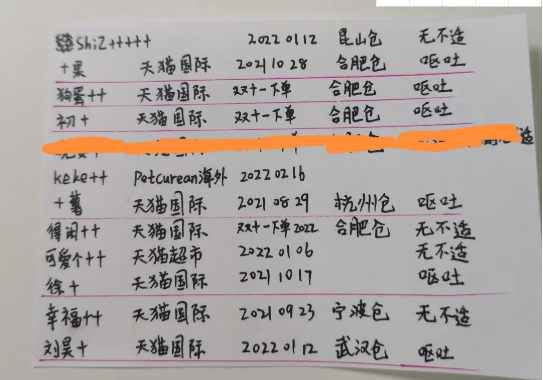 ShiZ+++++ 20220112 昆山仓 无不适
+果 天猫国际 20211028 合肥仓 呕吐
狗蛋++ 天猫国际 双十一下单 合肥仓 呕吐
初+ 天猫国际 双十一下单 合肥仓 呕吐
keke++ Petcurean海外 20220216
+薯 天猫国际 20210829 杭州仓 呕吐
得闲++ 天猫国际 双十一下单2022 合肥仓 无不适
可爱个++ 天猫超市 20220106 无不适
徐+ 天猫国际 20211017 呕吐
幸福++ 天猫国际 20210923 宁波仓 无不适
刘昊+ 天猫国际 20220112 武汉仓 呕吐